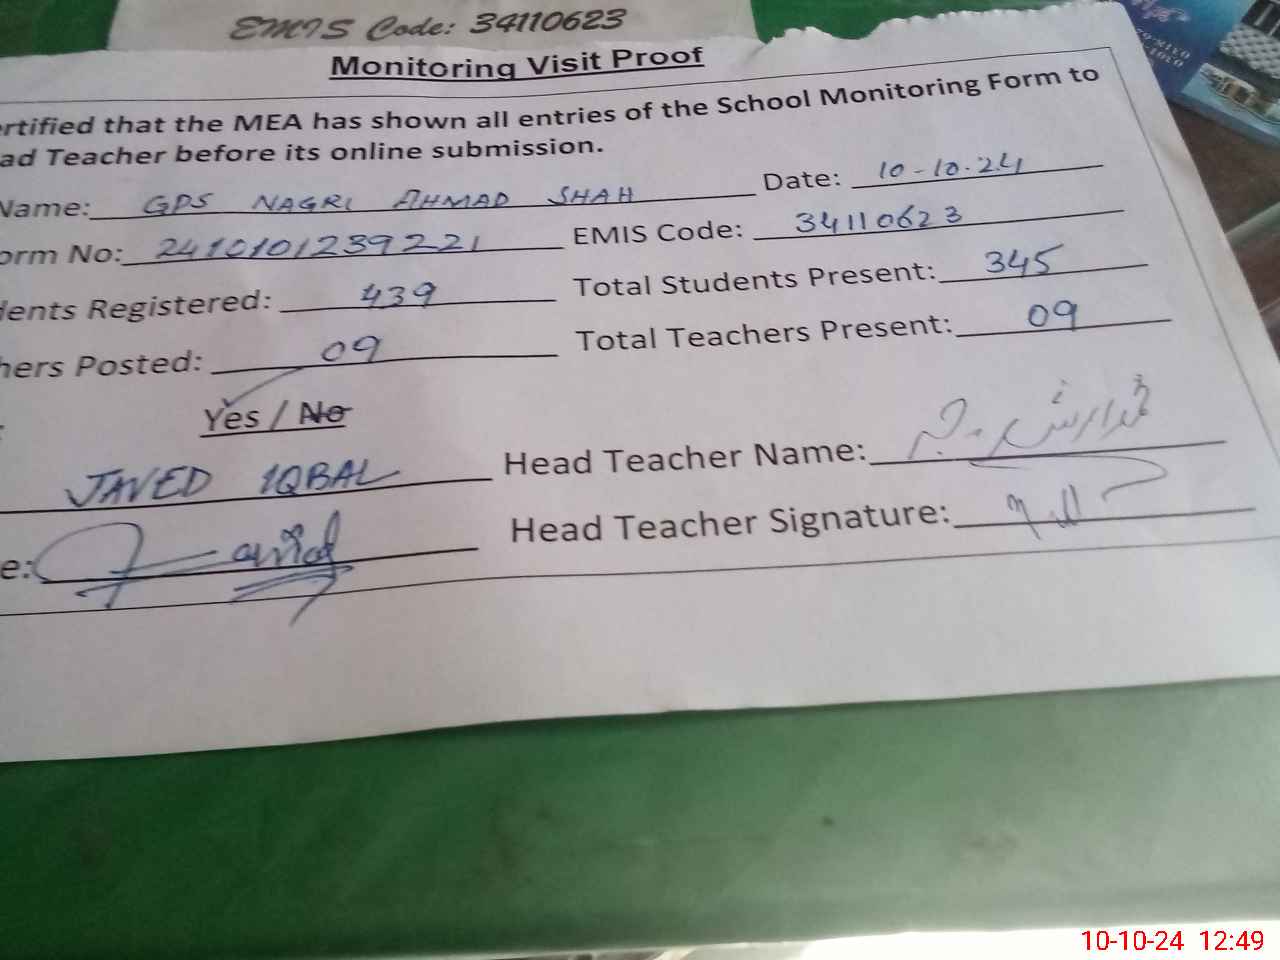 EMIS Code: 34110623
Monitoring Visit Proof
ertified that the MEA has shown all entries of the School Monitoring Form to
ad Teacher before its online submission.
Name: GPS NAGRI AHMAD SHAH Date: 10-10-24
orm No: 2410101239221 EMIS Code: 34110623
dents Registered: 439 Total Students Present: 345
hers Posted: 09 Total Teachers Present: 09
Yes / No
JAVED IQBAL Head Teacher Name:
e: Javid Head Teacher Signature:
10-10-24 12:49